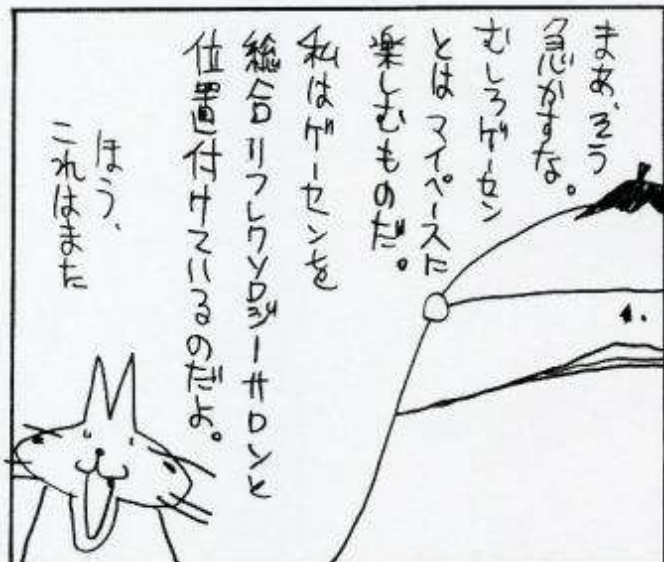 まあ、そう
急かすな。
むしろゲーセン
とはマイペースに
楽しむものだ。
私はゲーセンを
総合リフレクソロジーサロンと
位置付けているのだよ。
ほう、
これはまた